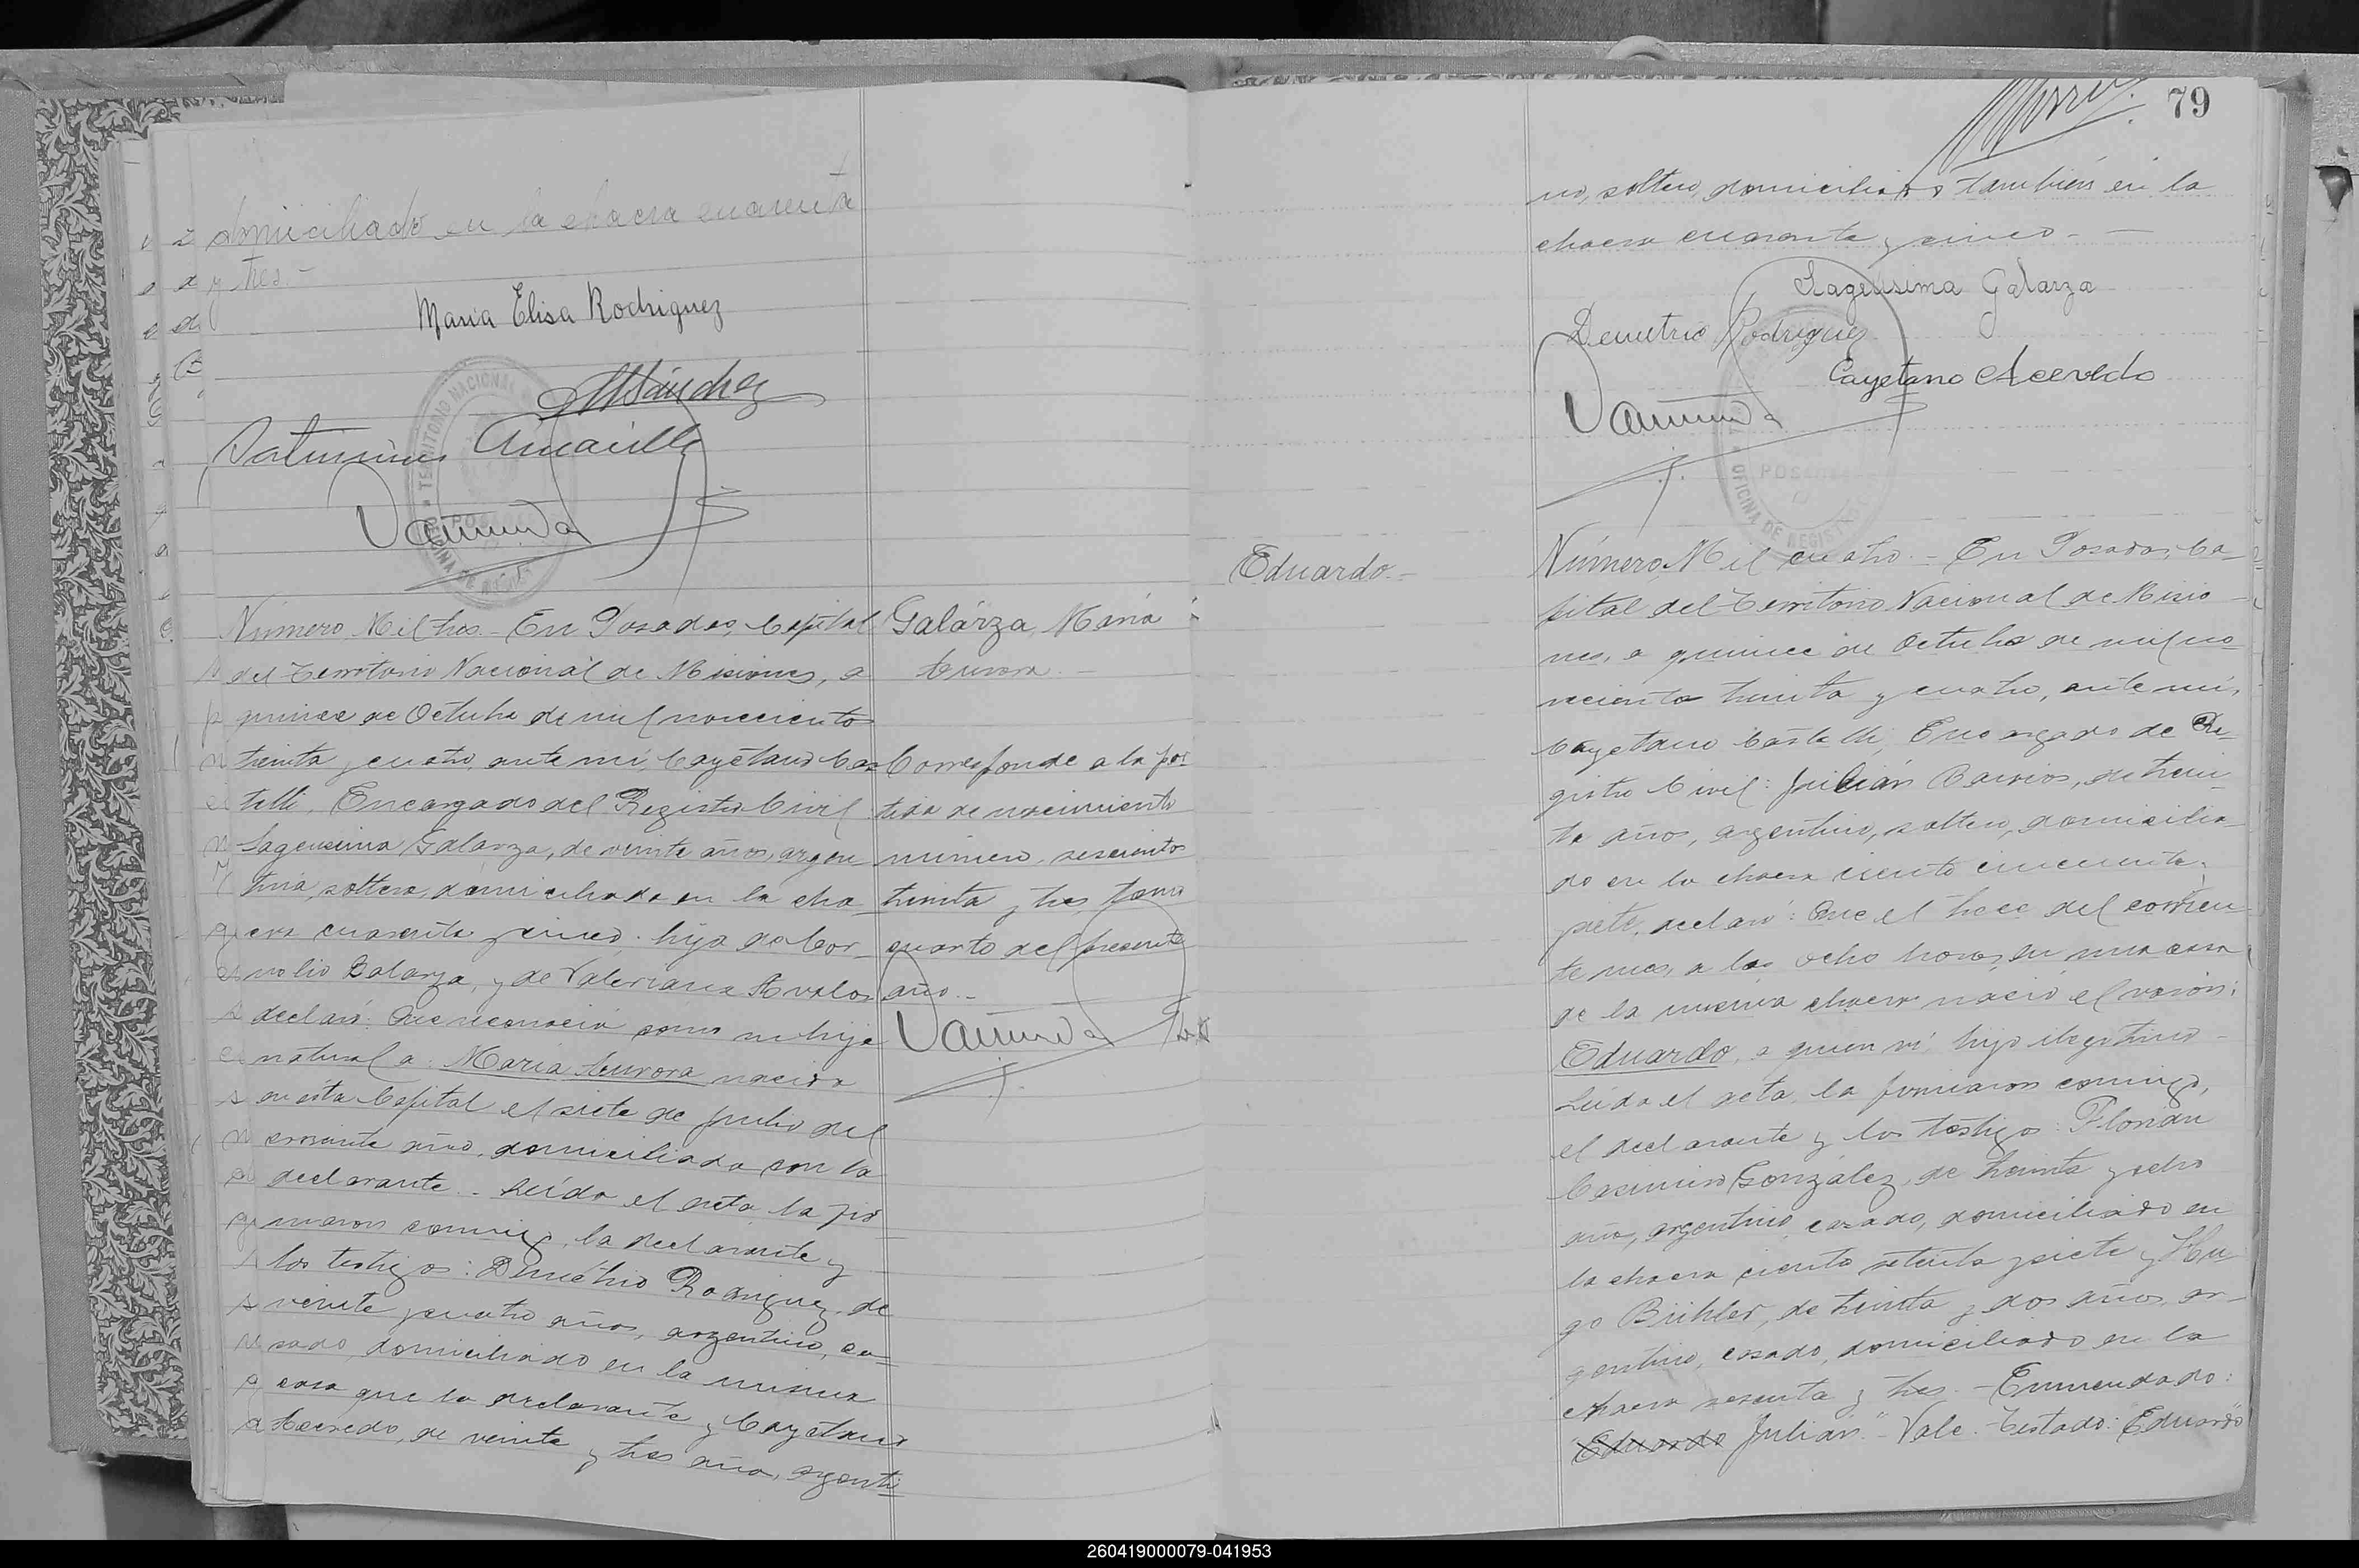 domiciliado en la chacra cuarenta
y tres.-
Maria Elisa Rodriguez
Sánchez
Saturnino Amarilla
TERRITORIO NACIONAL
Número Mil tres.- En Posadas, Capital
del Territorio Nacional de Misiones, a
quince de Octubre de mil novecientos
treinta y cuatro, ante mí, Cayetano Cas-
telli, Encargado del Registro Civil:
Galarza, de veinte años, argen
tina, soltera, domiciliada en la cha
cra cuarenta y cinco, hija de Cor-
nelio Galarza, y de Valeriana Avalos
declaró: Que reconocía como su hija
natural a: María Aurora nacida
en esta Capital el siete de Julio del
corriente año, domiciliada con la
declarante.- Leída el acta, la fir
maron conmigo, la declarante y
los testigos: Demetrio Rodriguez, de
veinte y cuatro años, argentino, ca-
sado, domiciliado en la misma
casa que la declarante y Cayetano
Acevedo, de veinte y tres años, argenti
Galarza, María
Aurora.-
Corresponde a la par
tida de nacimiento
número seiscientos
treinta y tres, tomo
cuarto del presente
año.-
79
no, soltero, domiciliado también en la
chacra cuarenta y cinco.-
Galarza
Demetrio Rodriguez
Cayetano Acevedo
POSADAS
OFICINA DE REGISTRO
Eduardo.-
Número Mil cuatro.- En Posadas, Ca-
pital del Territorio Nacional de Misio-
nes, a quince de Octubre de mil no-
vecientos treinta y cuatro, ante mí,
Cayetano Castelli, Encargado de Re-
gistro Civil: Julián Barrios, de trein-
ta años, argentino, soltero, domicilia-
do en la chacra ciento cincuenta y
siete, declaró: Que el trece del corrien-
te mes, a las ocho horas, en una casa
de la misma chacra nació el varón:
Eduardo, a quien ví, hijo ilegítimo-
Leída el acta, la firmaron conmigo,
el declarante y los testigos: Florián
Casimiro González, de treinta y ocho
años, argentino, casado, domiciliado en
la chacra ciento setenta y siete y Hu-
go Bühler, de treinta y dos años, ar-
gentino, casado, domiciliado en la
chacra sesenta y tres.- Enmendado:
"Eduardo Julián"- Vale. Testado: "Eduardo"
260419000079-041953